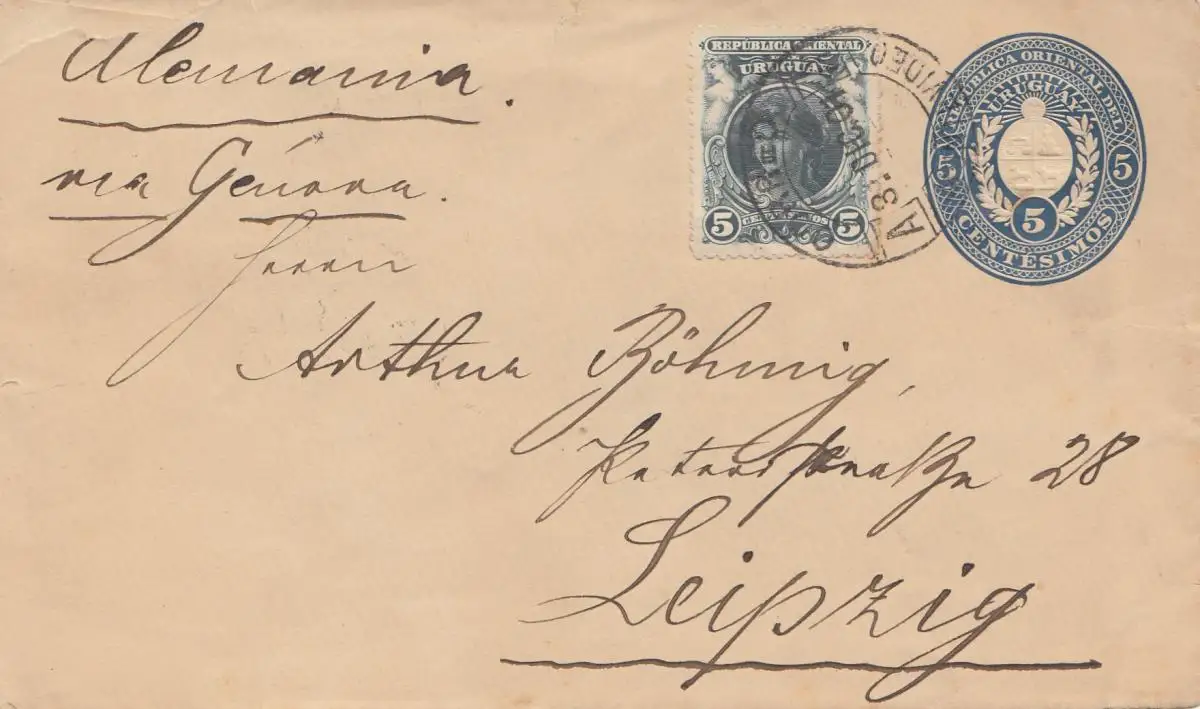 Alemania.
via Génova.
Herrn
Arthur Böhmig,
Petersstraße 28
Leipzig
REPÚBLICA ORIENTAL
URUGUAY
5 CENTESIMOS 5
REPÚBLICA ORIENTAL DEL
URUGUAY
5 5
5
CENTÉSIMOS